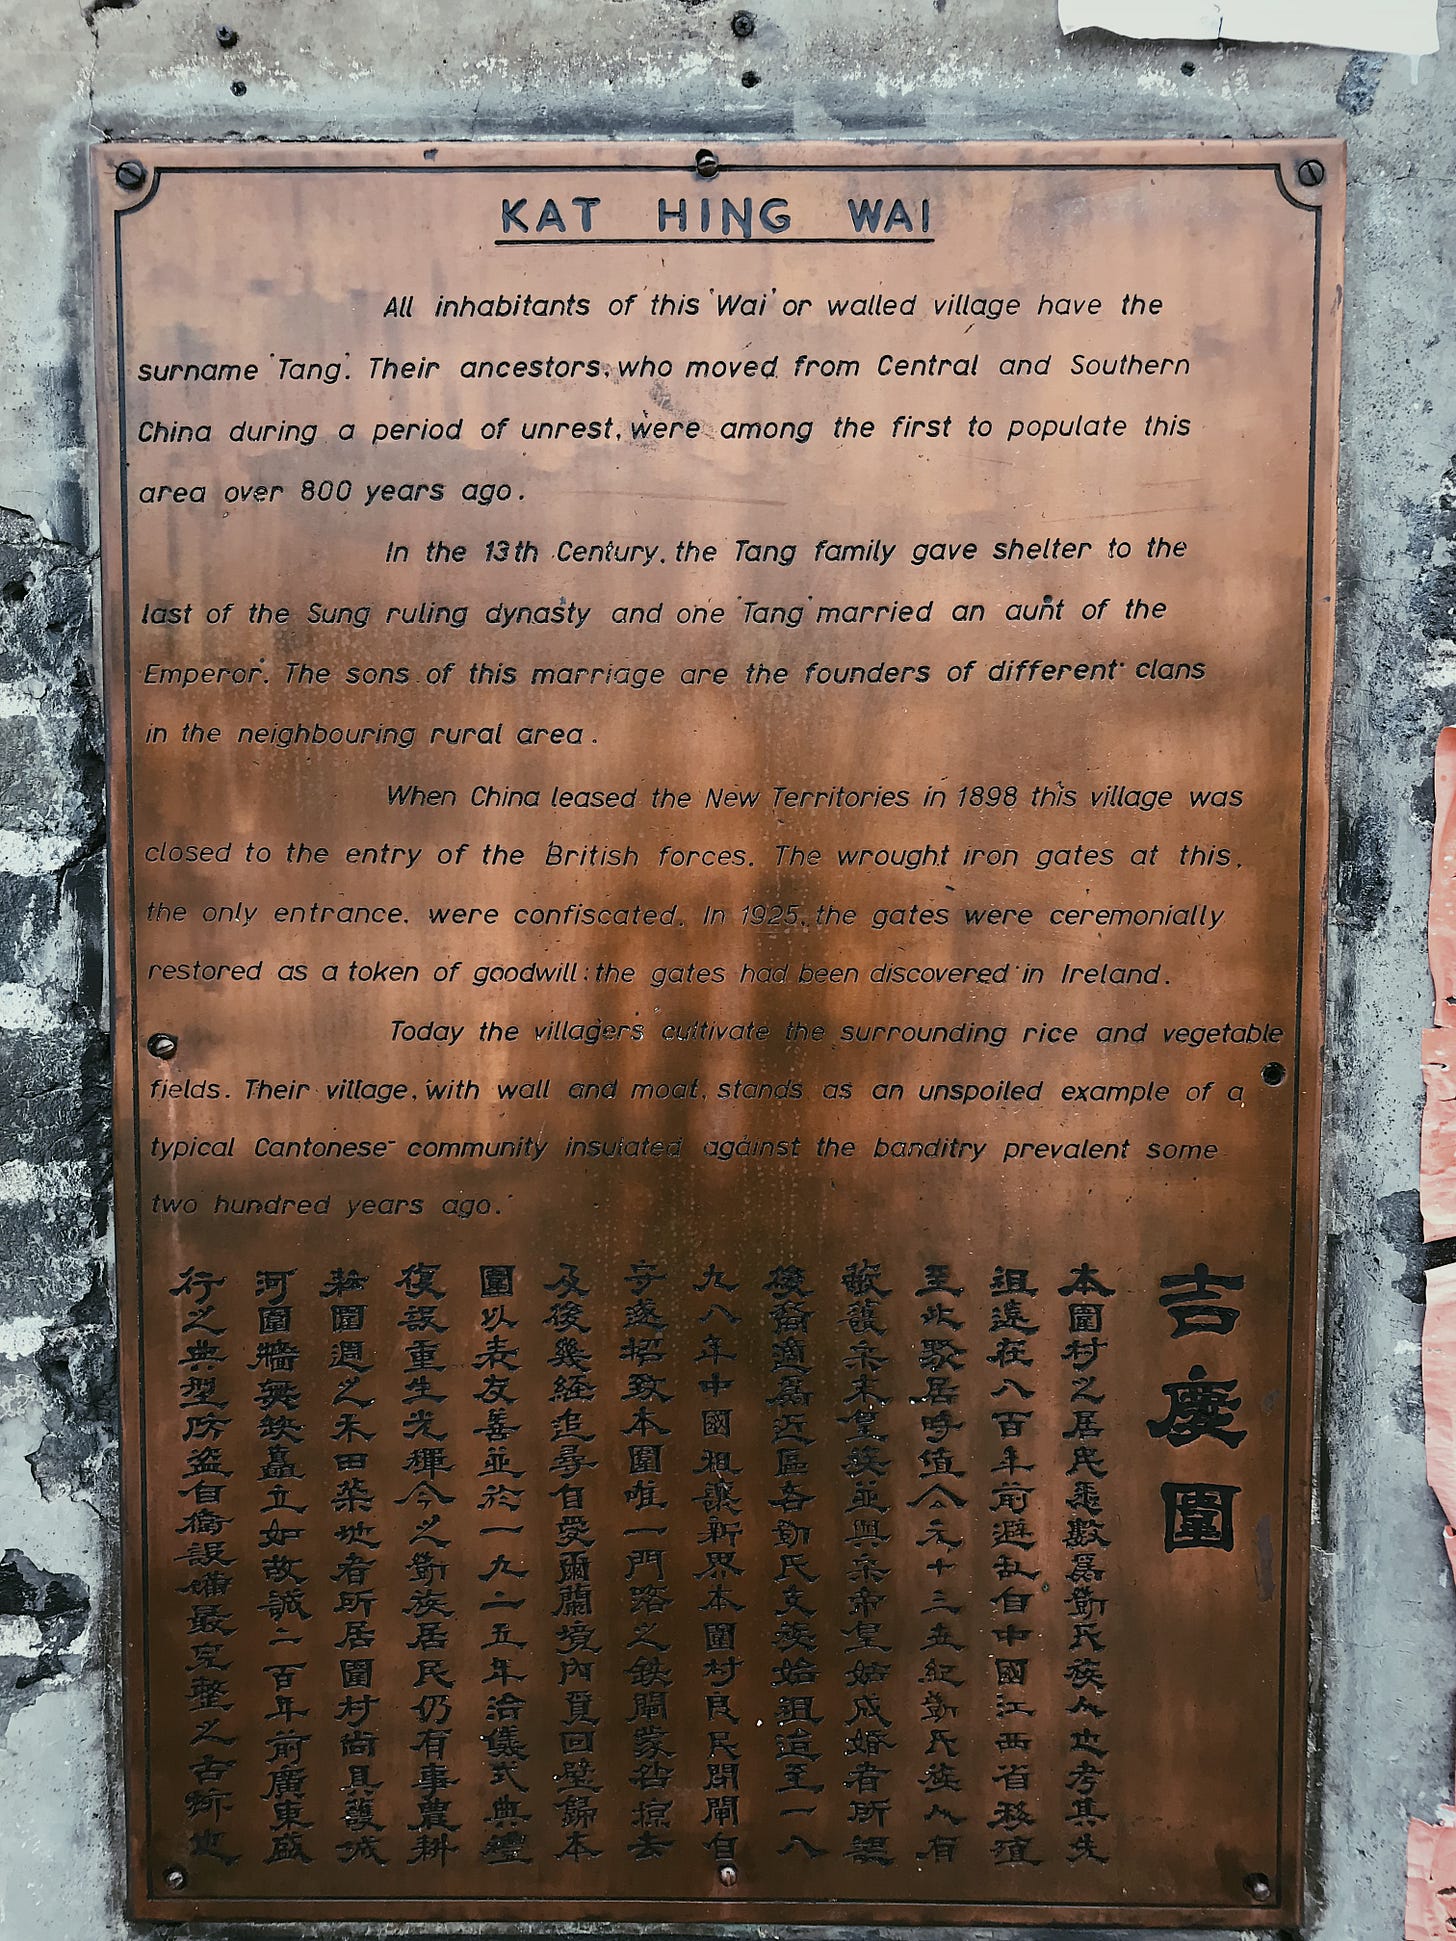 KAT HING WAI
All inhabitants of this 'Wai' or walled village have the
surname 'Tang'. Their ancestors, who moved from Central and Southern
China during a period of unrest, were among the first to populate this
area over 800 years ago.
In the 13th Century, the Tang family gave shelter to the
last of the Sung ruling dynasty and one 'Tang' married an aunt of the
Emperor. The sons of this marriage are the founders of different clans
in the neighbouring rural area.
When China leased the New Territories in 1898 this village was
closed to the entry of the British forces. The wrought iron gates at this,
the only entrance, were confiscated. In 1925, the gates were ceremonially
restored as a token of goodwill: the gates had been discovered in Ireland.
Today the villagers cultivate the surrounding rice and vegetable
fields. Their village, with wall and moat, stands as an unspoiled example of a
typical Cantonese community insulated against the banditry prevalent some
two hundred years ago.
吉慶圍
本圍村之居民悉數爲鄧氏族人也考其先
祖遠在八百年前避乱自中國江西省移殖
至此聚居時值公元十三世紀鄧氏族人有
敬護宋末皇族並與宋帝皇姑成婚者所誕
後裔適爲近區各鄧氏支族始祖迨至一八
九八年中國租讓新界本圍村良民閉閘自
守遂招致本圍唯一門路之鉄閘蒙掠去
及後幾經追尋自愛爾蘭境內覓回璧歸本
圍以表友善並於一九二五年洽儀式典禮
復設重生光輝今之鄧族居民仍有事農耕
耘圍週之禾田菜地者所居圍村尚具護城
河圍牆無缺矗立如故誠二百年前廣東盛
行之典型防盗自衛設備最完整之古跡也